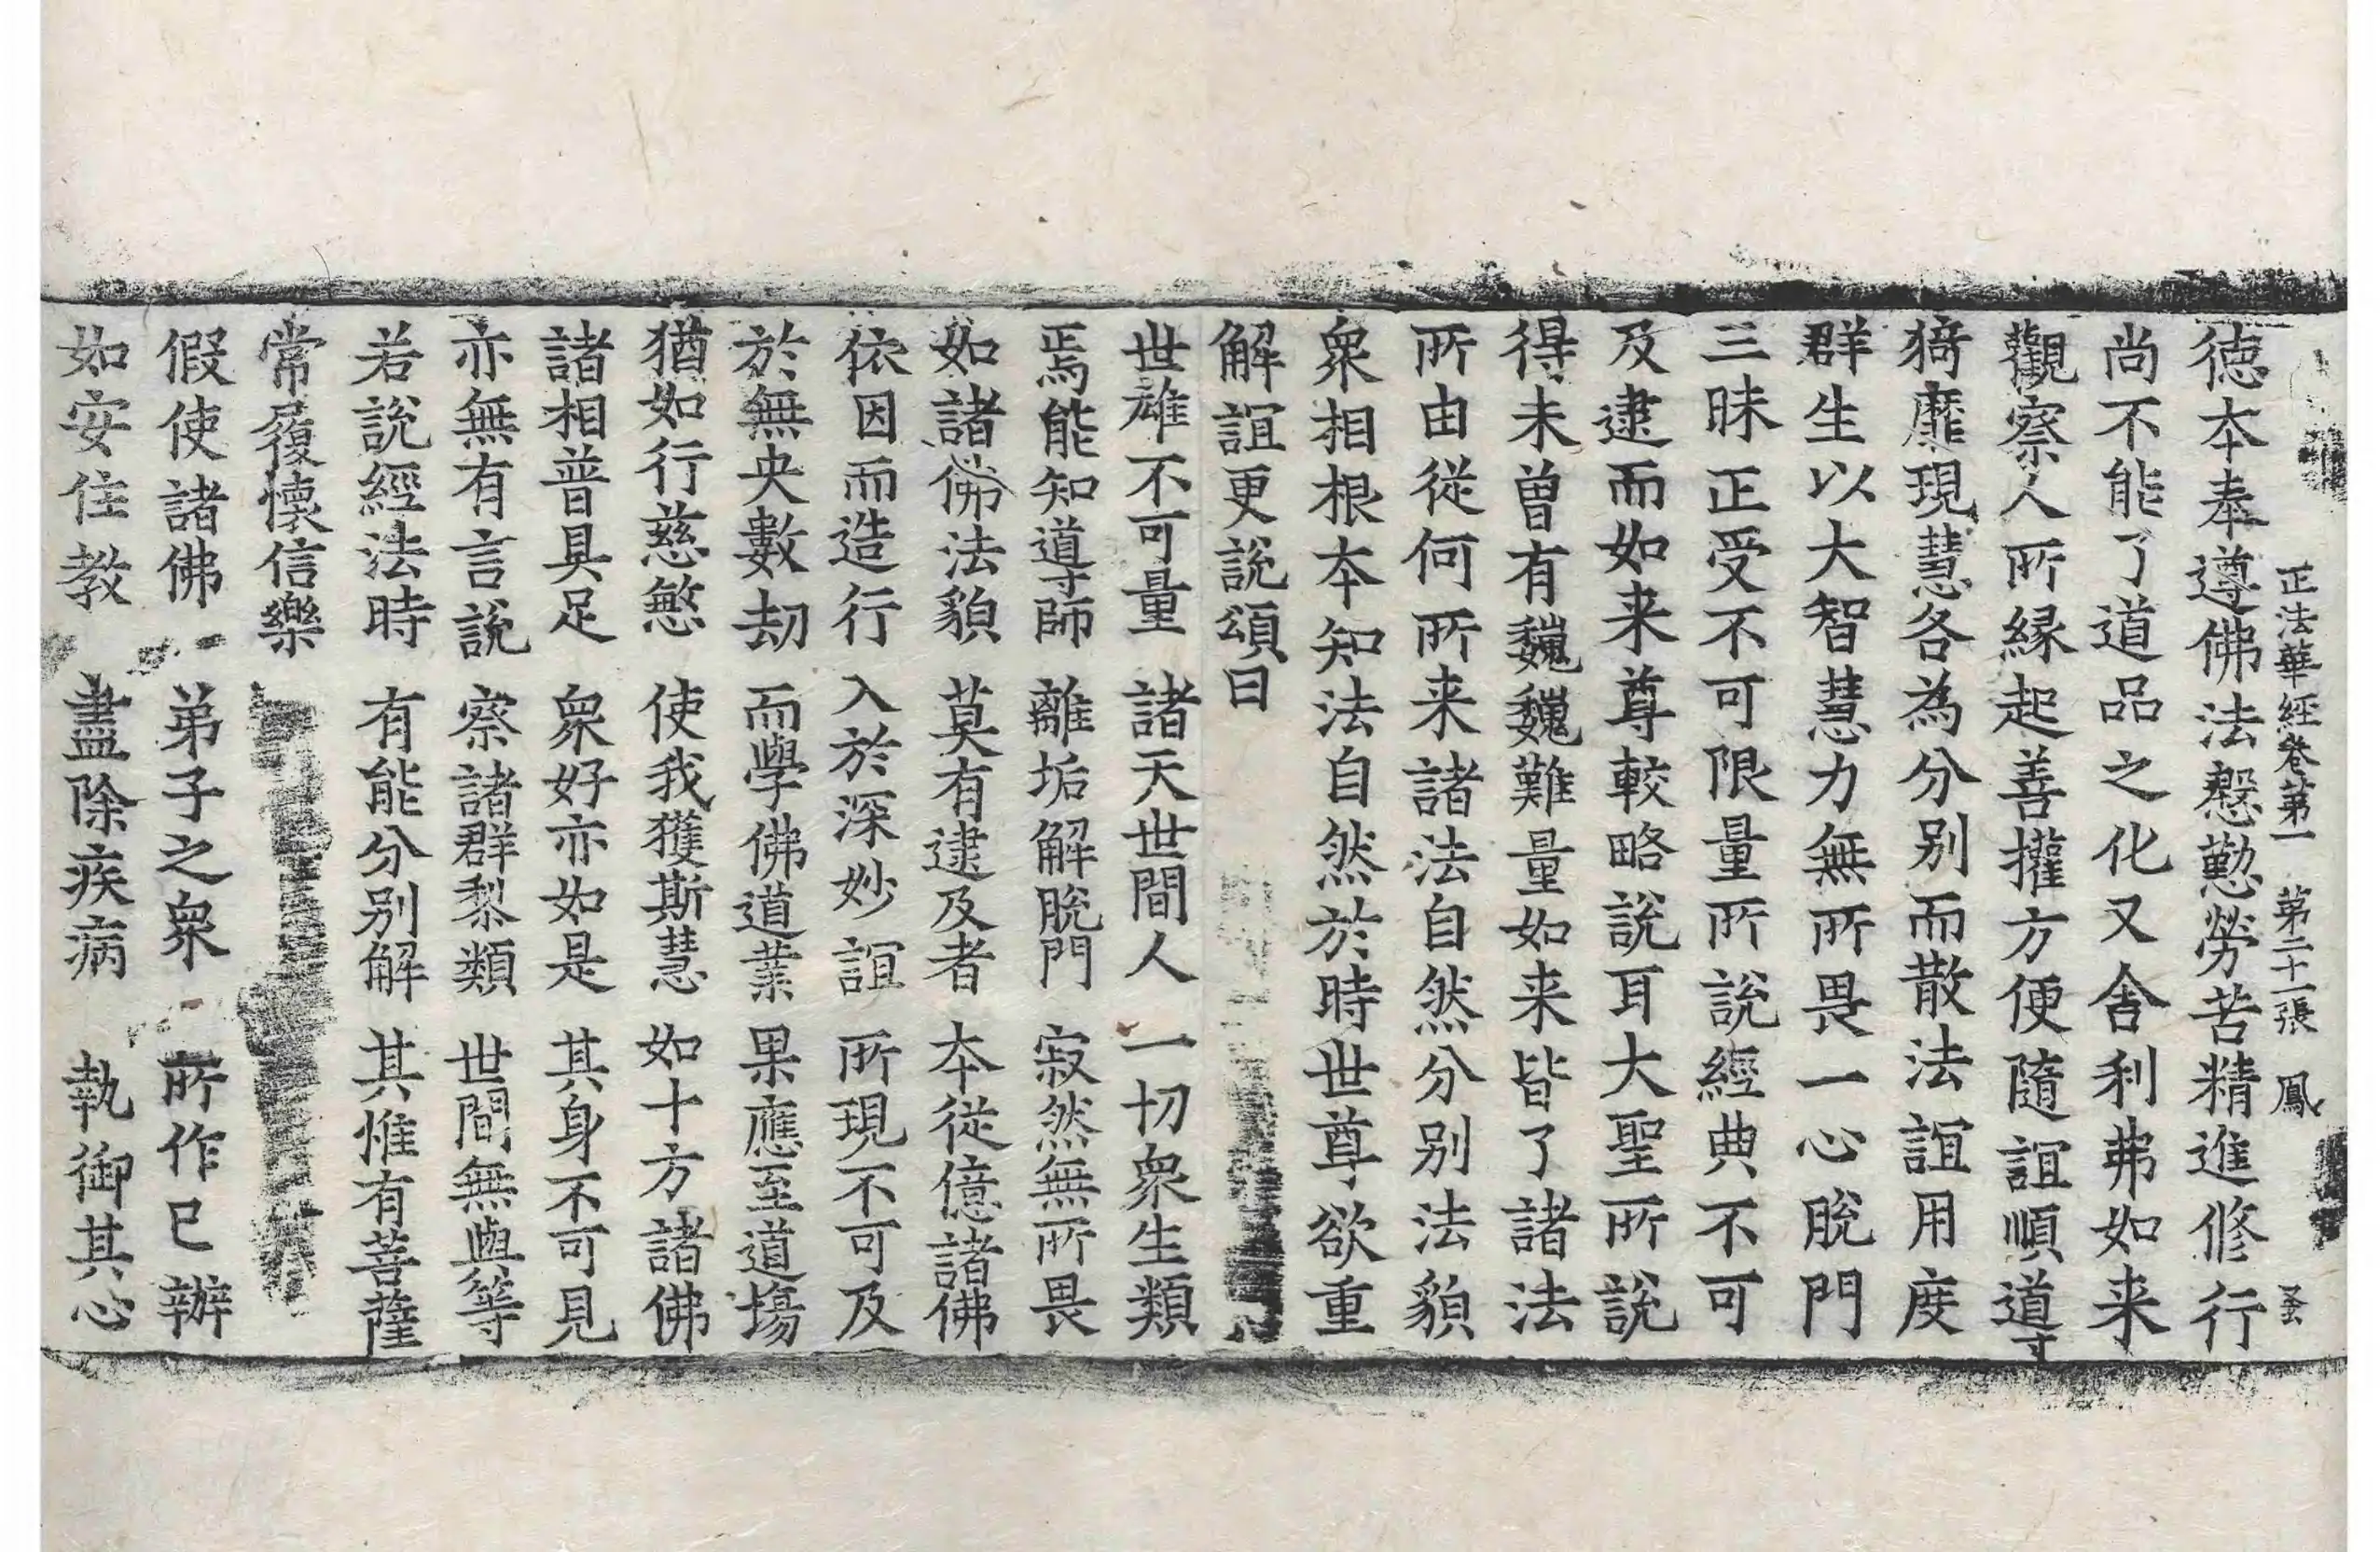 正法華經卷第一 第二十一張 鳳
德本奉遵佛法慇懃勞苦精進修行
尚不能了道品之化又舍利弗如来
觀察人所縁起善權方便隨誼順導
猗靡現慧各為分别而散法誼用度
群生以大智慧力無所畏一心脫門
三昧正受不可限量所說經典不可
及逮而如来尊較略說耳大聖所說
得未曾有巍巍難量如来皆了諸法
所由從何所来諸法自然分别法貌
衆相根本知法自然於時世尊欲重
解誼更說頌曰
世雄不可量 諸天世間人 一切衆生類
焉能知導師 離垢解脫門 寂然無所畏
如諸佛法貌 莫有逮及者 本從億諸佛
依因而造行 入於深妙誼 所現不可及
於無央數劫 而學佛道業 果應至道塲
猶如行慈愍 使我獲斯慧 如十方諸佛
諸相普具足 衆好亦如是 其身不可見
亦無有言說 察諸群黎類 世間無與等
若說經法時 有能分别解 其惟有菩薩
常履懷信樂
假使諸佛 弟子之衆 所作已辦
如安住教 盡除疾病 執御其心